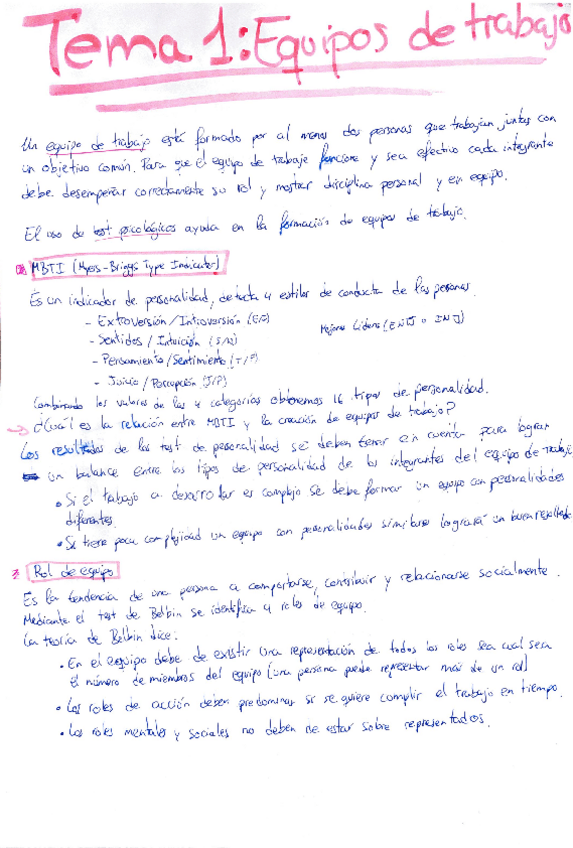 Tema 1: Equipos de trabajo
Un equipo de trabajo está formado por al menos dos personas que trabajan juntas con
un objetivo común. Para que el equipo de trabajo funcione y sea efectivo cada integrante
debe desempeñar correctamente su rol y mostrar disciplina personal y en equipo.
El uso de test psicológicos ayuda en la formación de equipos de trabajo.
MBTI (Myers-Briggs Type Indicator)
Es un indicador de personalidad, detecta 4 estilos de conducta de las personas.
- Extroversión / Introversión (E/I)
- Sentidos / Intuición (S/N)
Mejores Líderes (ENTJ o INTJ)
- Pensamiento / Sentimiento (T/F)
- Juicio / Percepción (J/P)
Combinando los valores de las 4 categorías obtenemos 16 tipos de personalidad.
→ ¿Cuál es la relación entre MBTI y la creación de equipos de trabajo?
Los resultados de los test de personalidad se deben tener en cuenta para lograr
un balance entre los tipos de personalidad de los integrantes del equipo de trabajo
• Si el trabajo a desarrollar es complejo se debe formar un equipo con personalidades
diferentes.
• Si tiene poca complejidad un equipo con personalidades similares logrará un buen resultado
Rol de equipo
Es la tendencia de una persona a comportarse, contribuir y relacionarse socialmente.
Mediante el test de Belbin se identifica 4 roles de equipo.
La teoría de Belbin dice:
• En el equipo debe de existir una representación de todos los roles sea cual sea
el número de miembros del equipo (una persona puede representar más de un rol)
• Los roles de acción deben predominar si se quiere cumplir el trabajo en tiempo.
• Los roles mentales y sociales no deben de estar sobre representados.